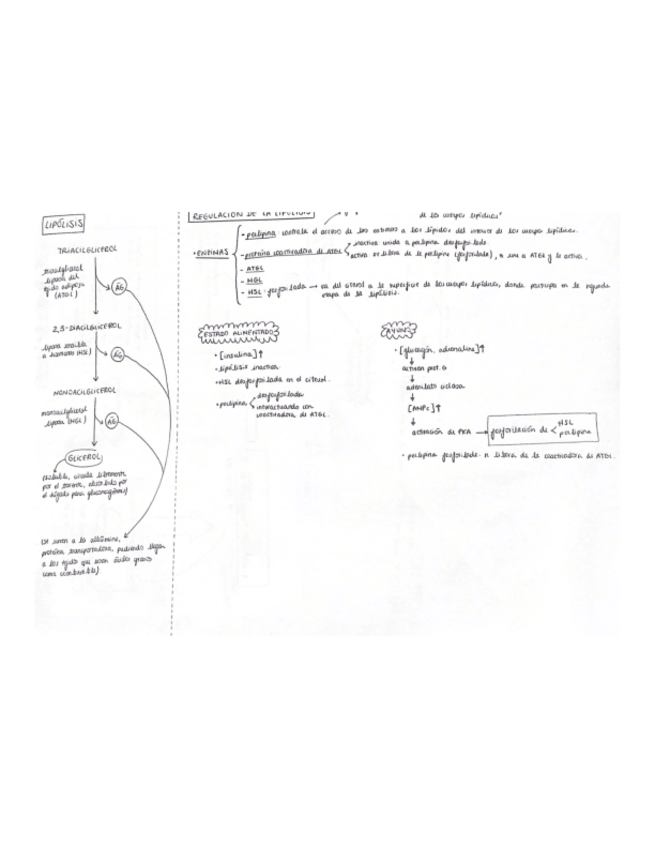 LIPÓLISIS
TRIACILGLICEROL
triacilglicerol
lipasa del
tejido adiposo
(ATGL)
AG
2,3-DIACILGLICEROL
lipasa sensible
a hormonas (HSL)
AG
MONOACILGLICEROL
monoacilglicerol
lipasa (MGL)
AG
GLICEROL
(soluble, circula libremente
por el torrente, absorbido por
el hígado para gluconeogénesis)
(se unen a la albúmina,
proteína transportadora, pudiendo llegar
a los tejidos que usan ácidos grasos
como combustible)
REGULACIÓN DE LA LIPÓLISIS
de los cuerpos lipídicos"
• ENZIMAS
• perilipina: controla el acceso de las enzimas a los lípidos del interior de los cuerpos lipídicos.
- proteína coactivadora de ATGL
inactiva: unida a perilipina desfosforilada
activa: se libera de la perilipina (fosforilada), se une a ATGL y la activa.
- ATGL
- MGL
- HSL: fosforilada → va del citosol a la superficie de los cuerpos lipídicos, donde participa en la segunda
etapa de la lipólisis.
ESTADO ALIMENTADO
• [insulina] ↑
• lipólisis inactiva
• HSL desfosforilada en el citosol.
• perilipina
desfosforilada
interactuando con
coactivadora de ATGL.
AYUNO
• [glucagón, adrenalina] ↑
↓
activan prot. G
↓
adenilato ciclasa
↓
[AMPc] ↑
↓
activación de PKA → fosforilación de < HSL
perilipina
• perilipina fosforilada: se libera de la coactivadora de ATGL.